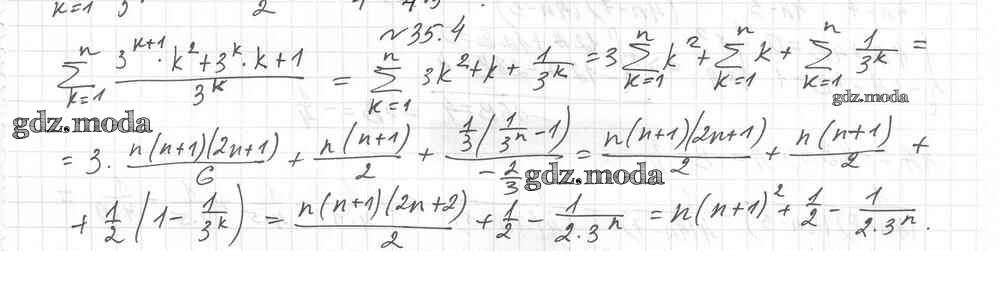 №35.4
\sum_{k=1}^{n} \frac{3^{k+1} \cdot k^2 + 3^k \cdot k + 1}{3^k} = \sum_{k=1}^{n} 3k^2 + k + \frac{1}{3^k} = 3 \sum_{k=1}^{n} k^2 + \sum_{k=1}^{n} k + \sum_{k=1}^{n} \frac{1}{3^k} =
gdz.moda
gdz.moda
= 3 \cdot \frac{n(n+1)(2n+1)}{6} + \frac{n(n+1)}{2} + \frac{\frac{1}{3}(\frac{1}{3^n} - 1)}{-\frac{2}{3}} = \frac{n(n+1)(2n+1)}{2} + \frac{n(n+1)}{2} +
gdz.moda
+ \frac{1}{2}(1 - \frac{1}{3^k}) = \frac{n(n+1)(2n+2)}{2} + \frac{1}{2} - \frac{1}{2 \cdot 3^n} = n(n+1)^2 + \frac{1}{2} - \frac{1}{2 \cdot 3^n}.